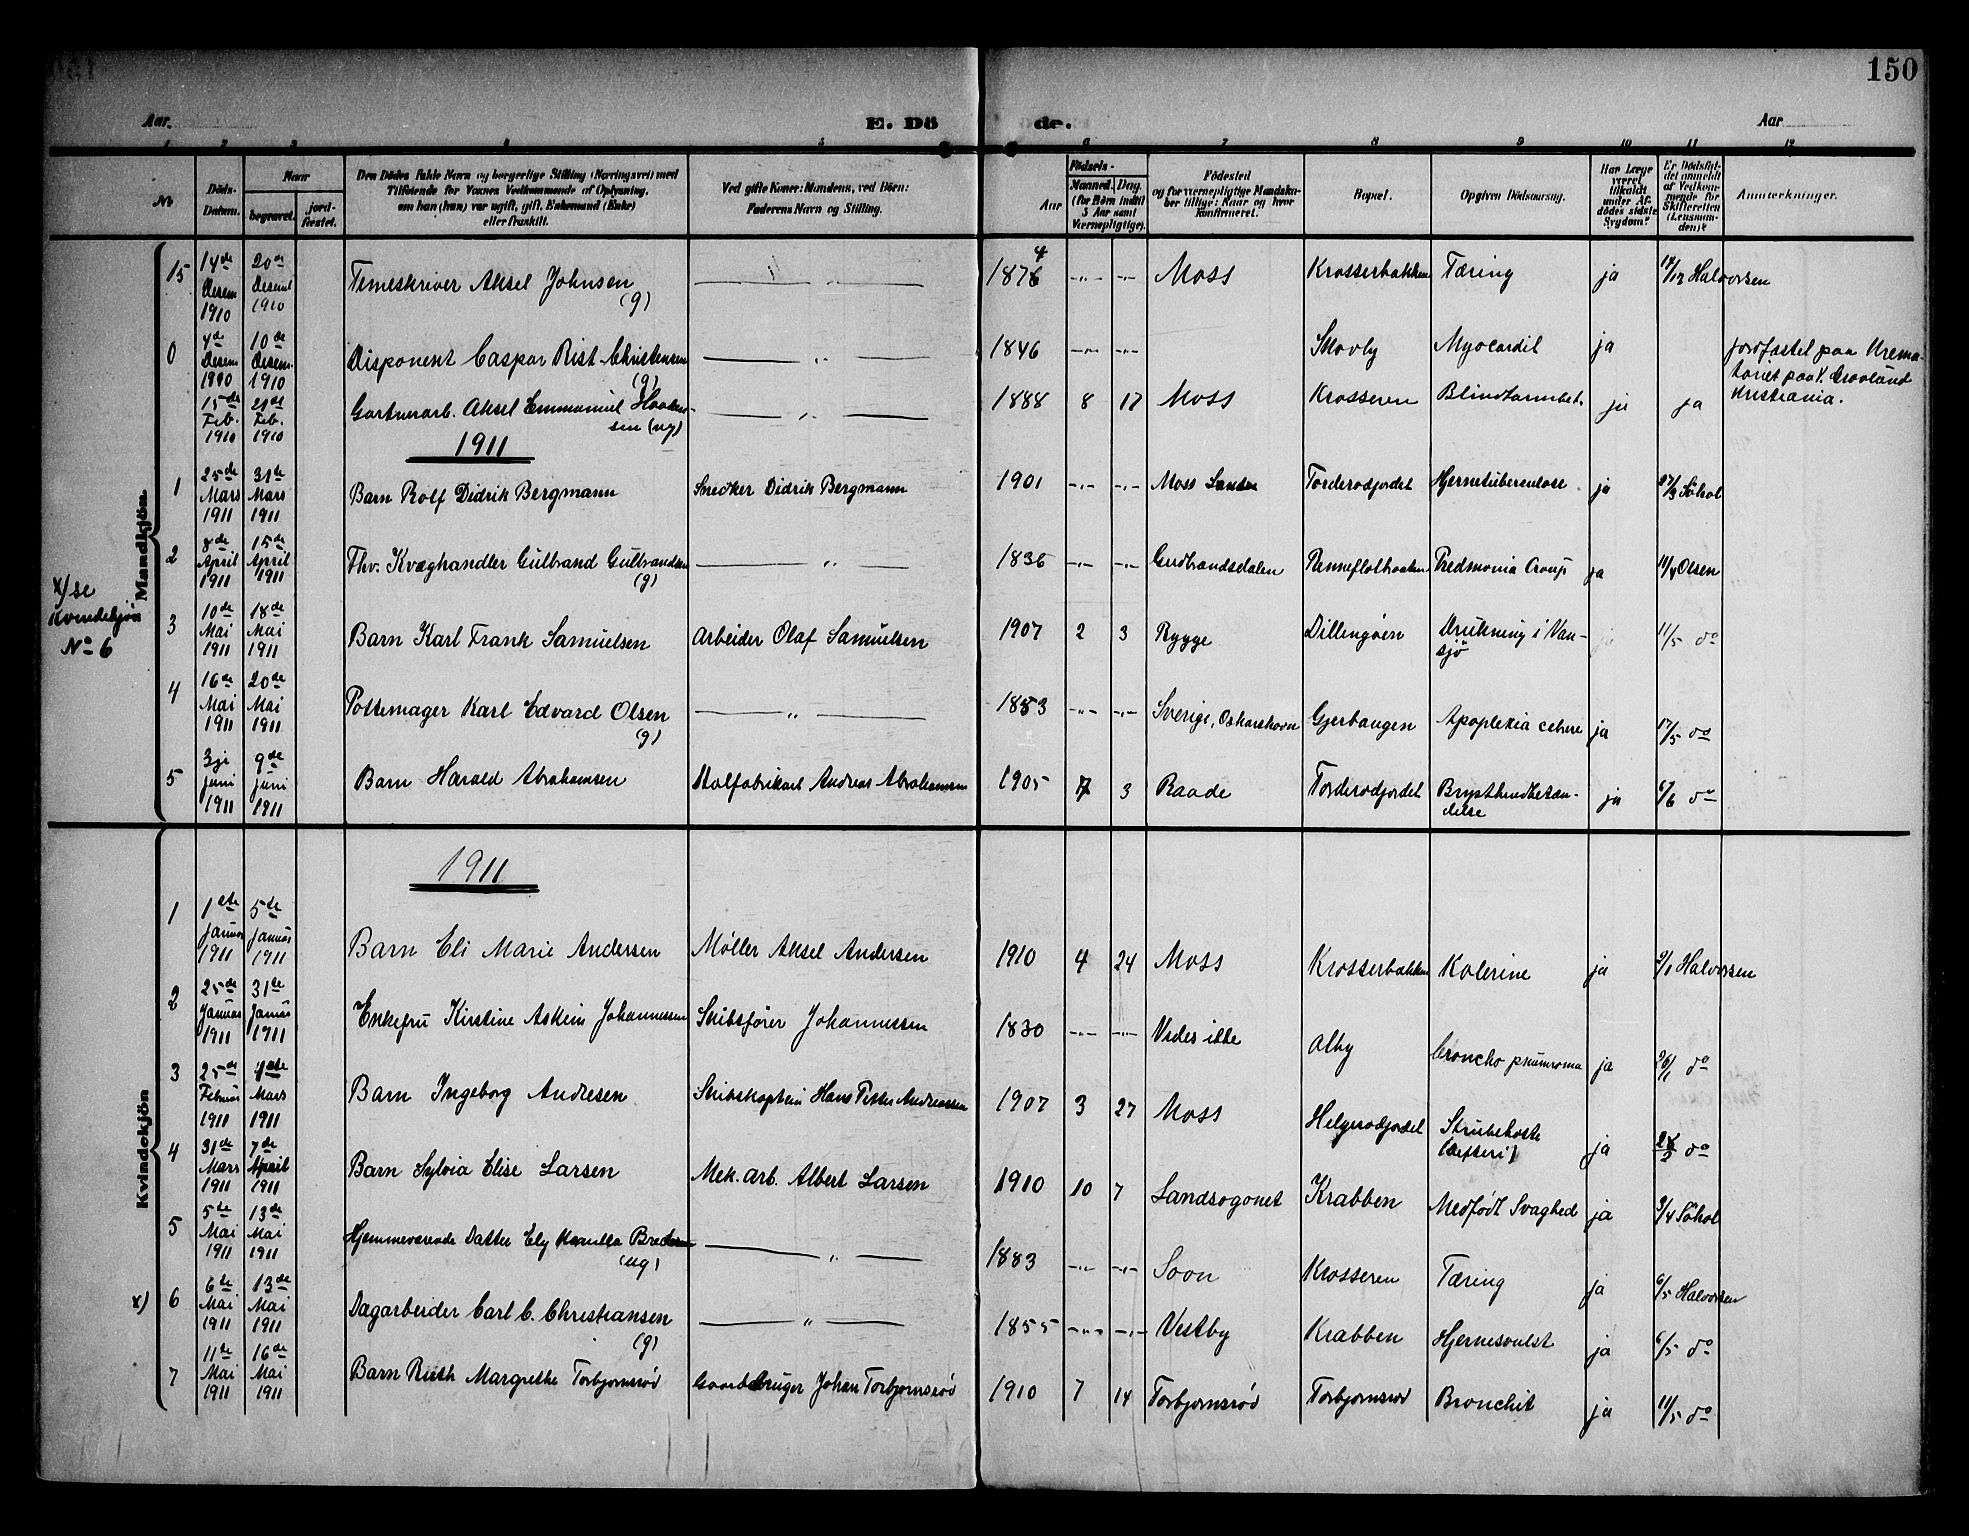 150
Aar.
E. Dö de.
Aar
1 2 3 4 5 6 7 8 9 10 11 12
No
Döds-Datum.
Naar
begravet.
jord-fæstet.
Den Dödes fulde Navn og borgerlige Stilling (Næringsvei) med
Tilföiende for Voxnes Vedkommende af Oplysning,
om han (hun) var ugift, gift, Enkemand (Enke)
eller fraskilt.
Ved gifte Koner: Mandens, ved Börn:
Faderens Navn og Stilling.
Födsels-
Aar
Maaned. Dag.
(for Börn indtil
3 Aar samt
Værnepligtige).
Födested
og for værnepligtige Mandska-
ber tillige: Naar og hvor
konfirmeret.
Bopæl.
Opgiven Dödsaarsag.
Har Læge
været
tilkaldt
under Af-
dödes sidste
Sygdom?
Er Dödsfal-
det anmeldt
af Vedkom-
mende for
Skifteretten
(Lensman-
den)?
Anmerkninger.
Mandkjön
15 14de Desem 1910 20de Desemb 1910 Timeskriver Aksel Johnsen (g) — „ — 1876 4 -„- -„- Moss Krosserbakken Tæring ja 17/12 Halvorsen
0 4de Desem 1910 10de Desem. 1910 Disponent Caspar Rist Christensen (g) — „ — 1846 -„- -„- Skovly Myocardit ja jordfæstet paa Krema-
toriet paa V. Gravlund
Kristiania.
15de Feb. 1910 21de Feb. 1910 Gartnerarb. Aksel Emmanuel Haaken-
sen (ug) — „ — 1888 8 17 Moss Krosseren Blindtarmbet. ja ja
1911
1 25de Mars 1911 31te Mars 1911 Barn Rolf Didrik Bergmann Snedker Didrik Bergmann 1901 -„- -„- Moss Torderødjordet Hjernetuberculose ja 27/3 Søhol
2 8de April 1911 15de April 1911 Fhv. Kvæghandler Gulbrand Gulbrandsen (g) — „ — 1836 -„- -„- Gudbrandsdalen Renneflotbakken Croup ja 11/4 Olsen
x/se
Kvindekjön
No 6
3 10de Mai 1911 18de Mai 1911 Barn Karl Frank Samuelsen Arbeider Olaf Samuelsen 1907 2 3 Rygge Dillingøen Drukning i Van-
sjø ja 11/5 do
4 16de Mai 1911 20de Mai 1911 Pottemager Karl Edvard Olsen (g) — „ — 1853 -„- -„- Sverige, Oskarshavn Gjerhaugen Apoplexia cebere ja 17/5 do
5 3je juni 1911 9de juni 1911 Barn Harald Abrahamsen Andreas Abrahamsen 1905 7 3 Raade Torderødjordet Brysthindbetæn-
delse ja 6/6 do
Kvindekjön
1911
1 1ste januar 1911 5te januar 1911 Barn Eli Marie Andersen Møller Aksel Andersen 1910 4 24 Moss Krosserbakken Kolerine ja 2/1 Halvorsen
2 25de Januar 1911 31te Januar 1911 Enkefru Kirstine Askim Johannessen Skibsfører Johannessen 1830 -„- -„- Vides ikke Alby ja 26/1 do
3 25de Februar 1911 Mars 1911 Barn Ingeborg Andresen Skibskaptein Hans Petter Andreassen 1907 3 27 Moss Helgerødjordet Strubehoste
(defteri) ja do
4 31te Mars 1911 7de April 1911 Barn Sylvia Elise Larsen Mek. arb. Albert Larsen 1910 10 7 Landsognet Krabben Medfødt Svaghed ja 3/4 Søhol
5 5te Mai 1911 13de Mai 1911 Hjemmeværende Datter Ely (ug) — „ — 1883 -„- -„- Soon Krosseren Tæring ja 6/5 Halvorsen
x) 6 6te Mai 1911 13de Mai 1911 Dagarbeider Carl C. Christiansen (g) — „ — 1855 -„- -„- Vestby Krabben Hjernesvulst ja 6/5 do
7 11te Mai 1911 16de Mai 1911 Barn Ruth Margrethe Torbjørnsrød Gaardbruger Johan Torbjørnsrød 1910 7 14 Torbjørnsrød Torbjørnsrød Bronchit ja 11/5 do